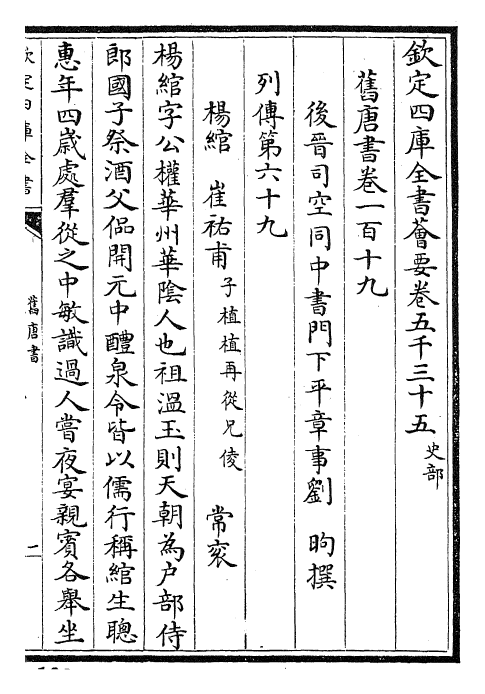 欽定四庫全書薈要卷五千三十五 史部
舊唐書卷一百十九
後晉司空同中書門下平章事劉 昫撰
列傳第六十九
楊綰 崔祐甫 子植植再從兄倰 常衮
楊綰字公權華州華陰人也祖溫玉則天朝為户部侍
郎國子祭酒父侶開元中醴泉令皆以儒行稱綰生聰
惠年四歲處羣從之中敏識過人嘗夜宴親賓各舉坐
欽定四庫全書
舊唐書